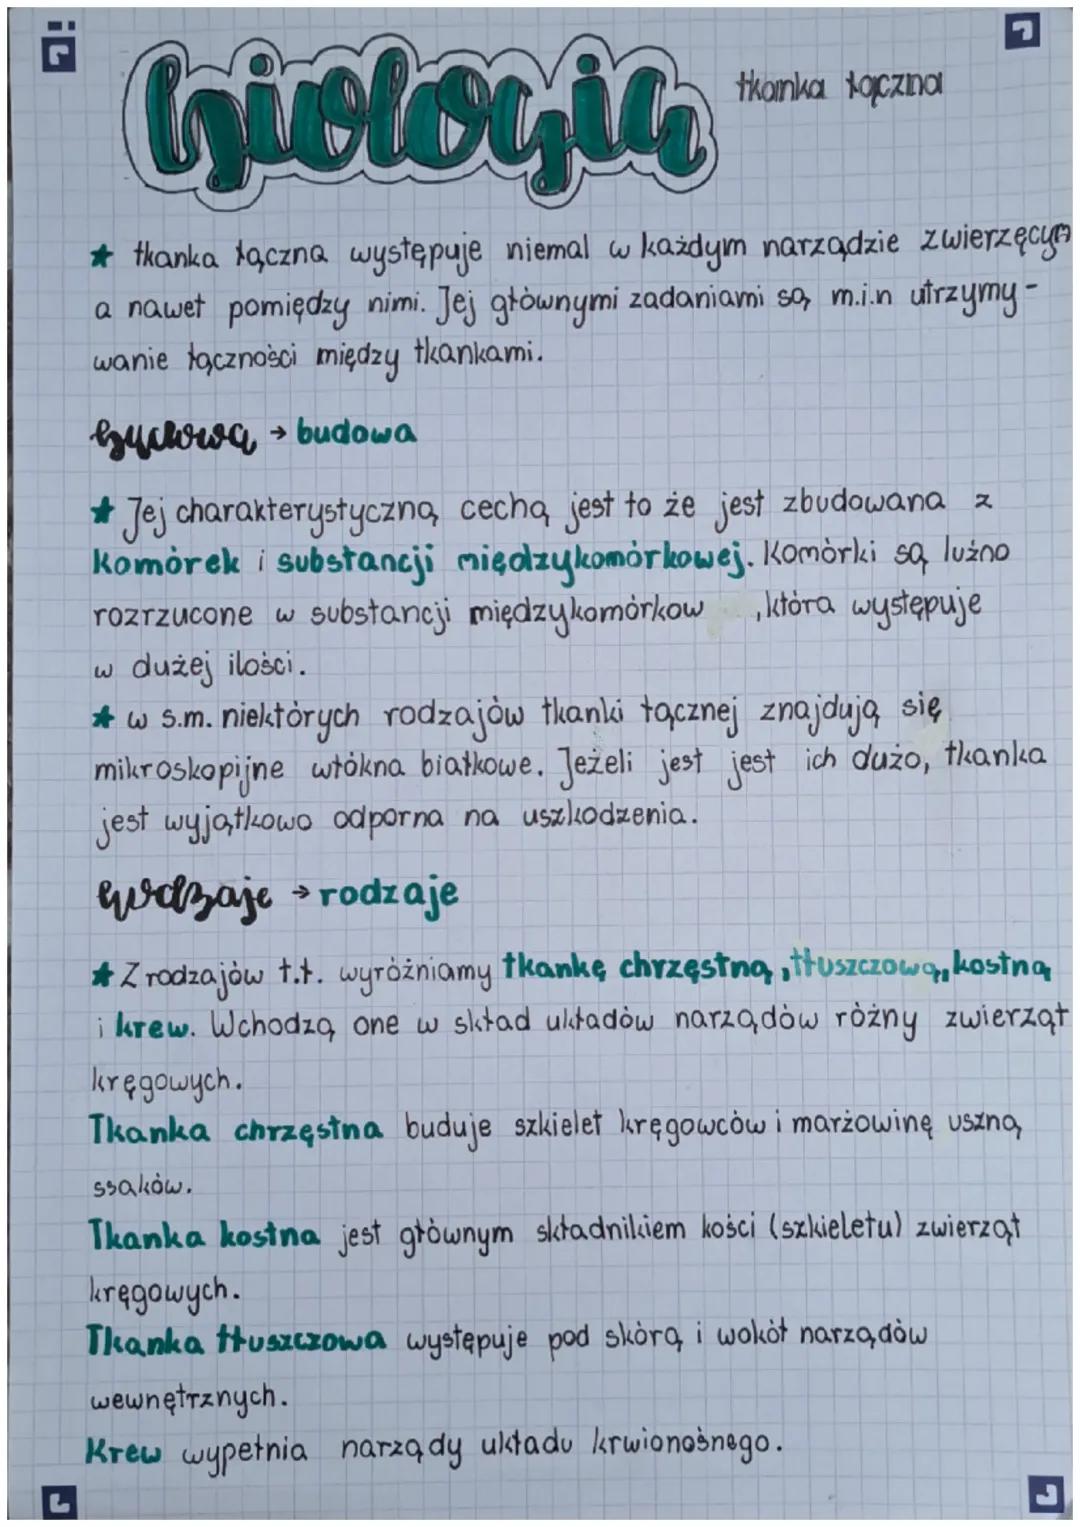 biologia
tkanka łączna
★ tkanka łączna występuje niemal w każdym narządzie zwierzęcym
a nawet pomiędzy nimi. Jej głównymi zadaniami są m.i.n utrzymy-
wanie łączności między tkankami.
→ budowa
★ Jej charakterystyczną cechą jest to że jest zbudowana z
komórek i substancji międzykomórkowej. Komórki są luźno
rozrzucone w substancji międzykomórkow , która występuje
w dużej ilości.
★ w s.m. niektórych rodzajów tkanki łącznej znajdują się
mikroskopijne włókna białkowe. Jeżeli jest jest ich dużo, tkanka
jest wyjątkowo odporna na uszkodzenia.
→ rodzaje
★ Z rodzajów t.ł. wyróżniamy tkankę chrzęstną, tłuszczową, kostną
i krew. Wchodzą one w skład układów narządów różny zwierząt
kręgowych.
Tkanka chrzęstna buduje szkielet kręgowców i marżowinę uszną
ssaków.
Tkanka kostna jest głównym składnikiem kości (szkieletu) zwierząt
kręgowych.
Tkanka tłuszczowa występuje pod skórą i wokół narządów
wewnętrznych.
Krew wypełnia narządy układu krwionośnego.